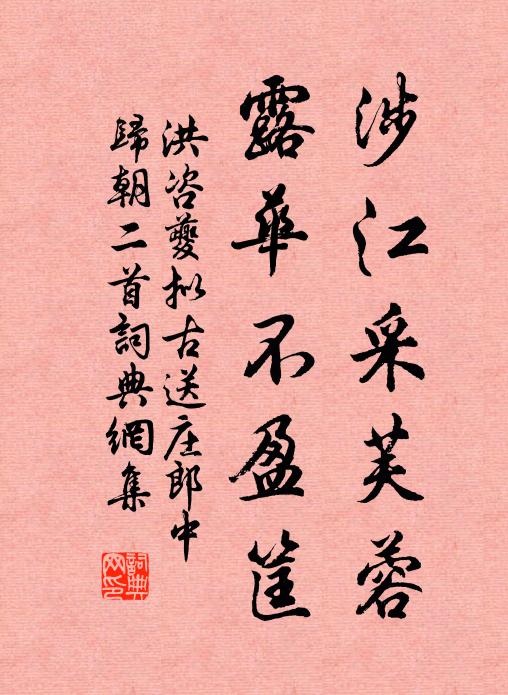 涉江采芙蓉
露華不盈筐
洪咨夔拟古送庄郎中
歸朝二首詞典網集
詞典
网印